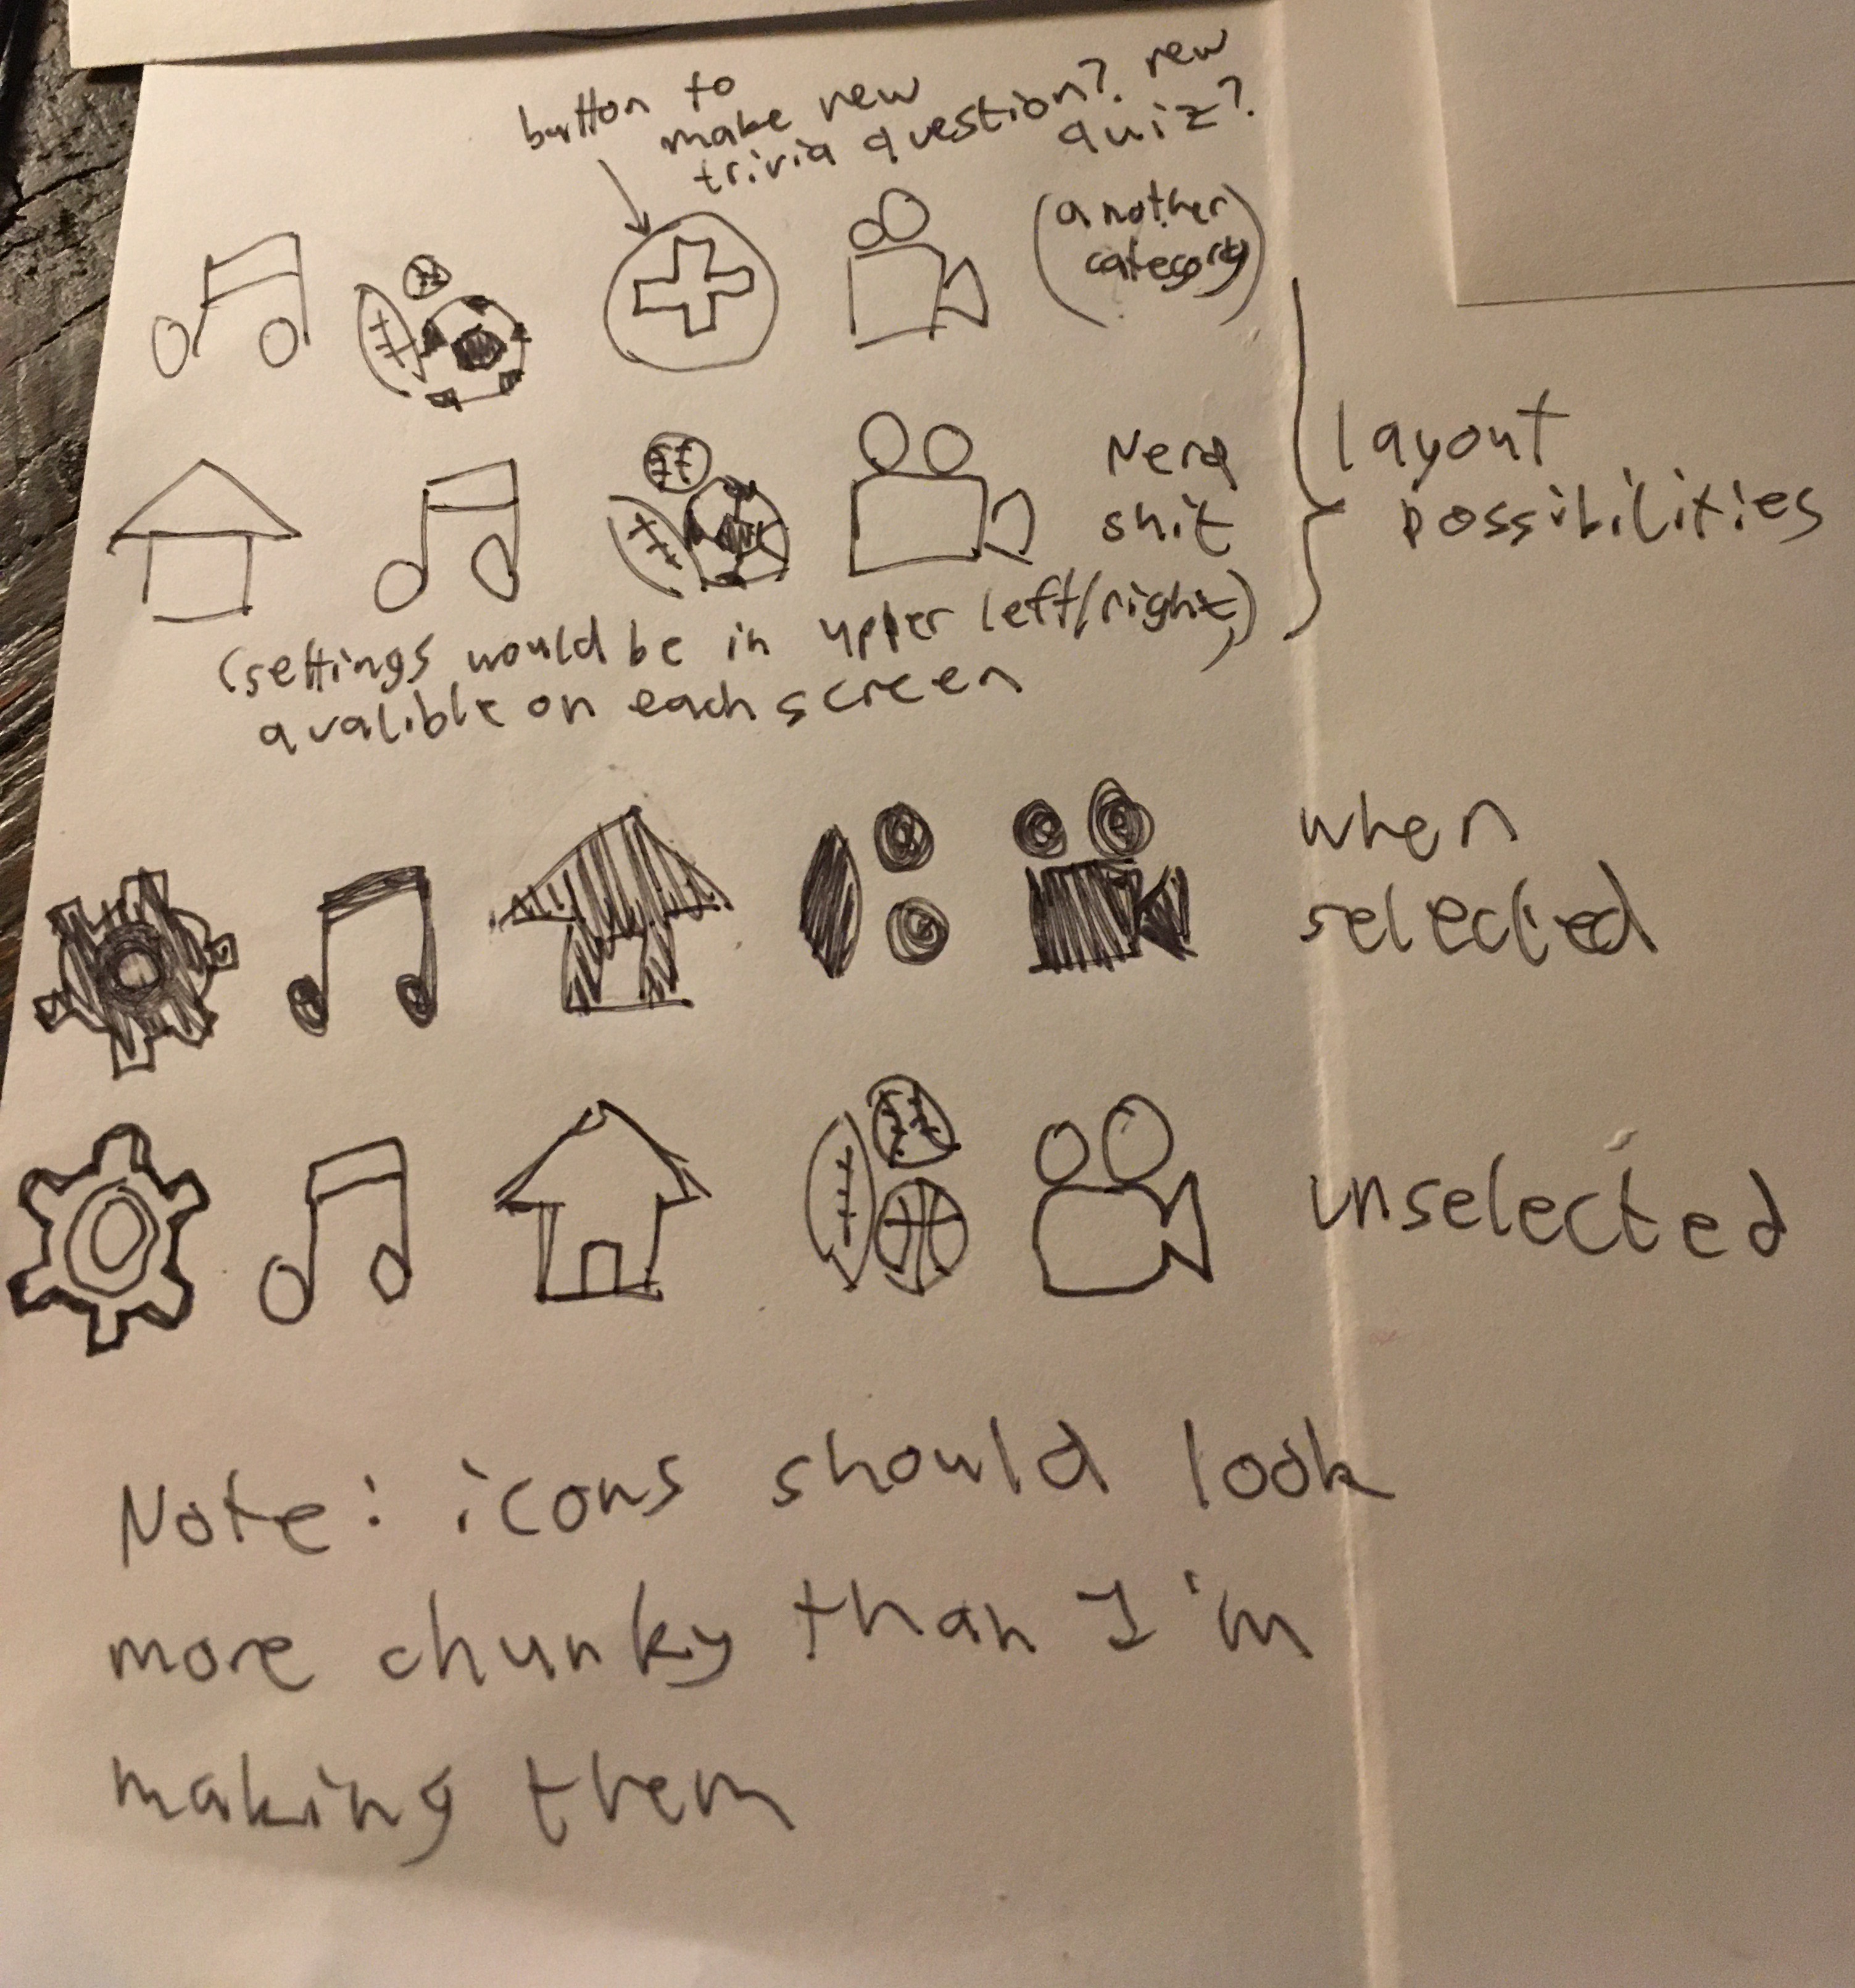 button to
make new
trivia question? new
quiz?
(another
category)
Nerd
shit
layout
possibilities
(settings would be in upper left/right,)
avalible on each screen
when
selected
unselected
Note: icons should look
more chunky than I'm
making them